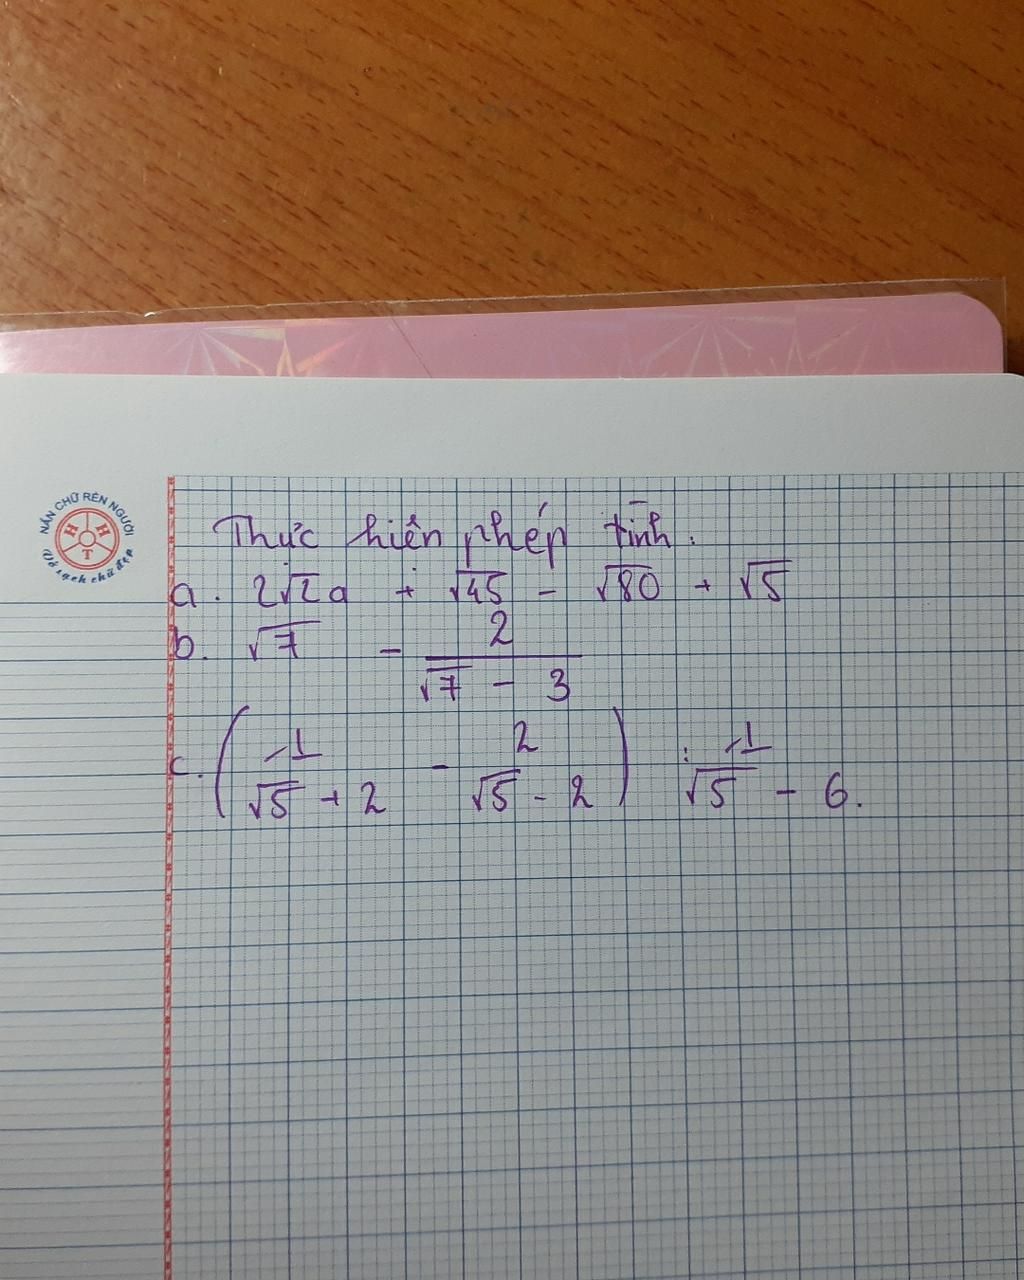 NẮN CHỮ RÈN NGƯỜI
H H T
Vở sạch chữ đẹp
Thực hiện phép tính.
a. 2√2a + √45 - √80 + √5
b. √7 - 2/(√7 - 3)
c. (1/(√5 + 2) - 2/(√5 - 2)) : 1/√5 - 6.